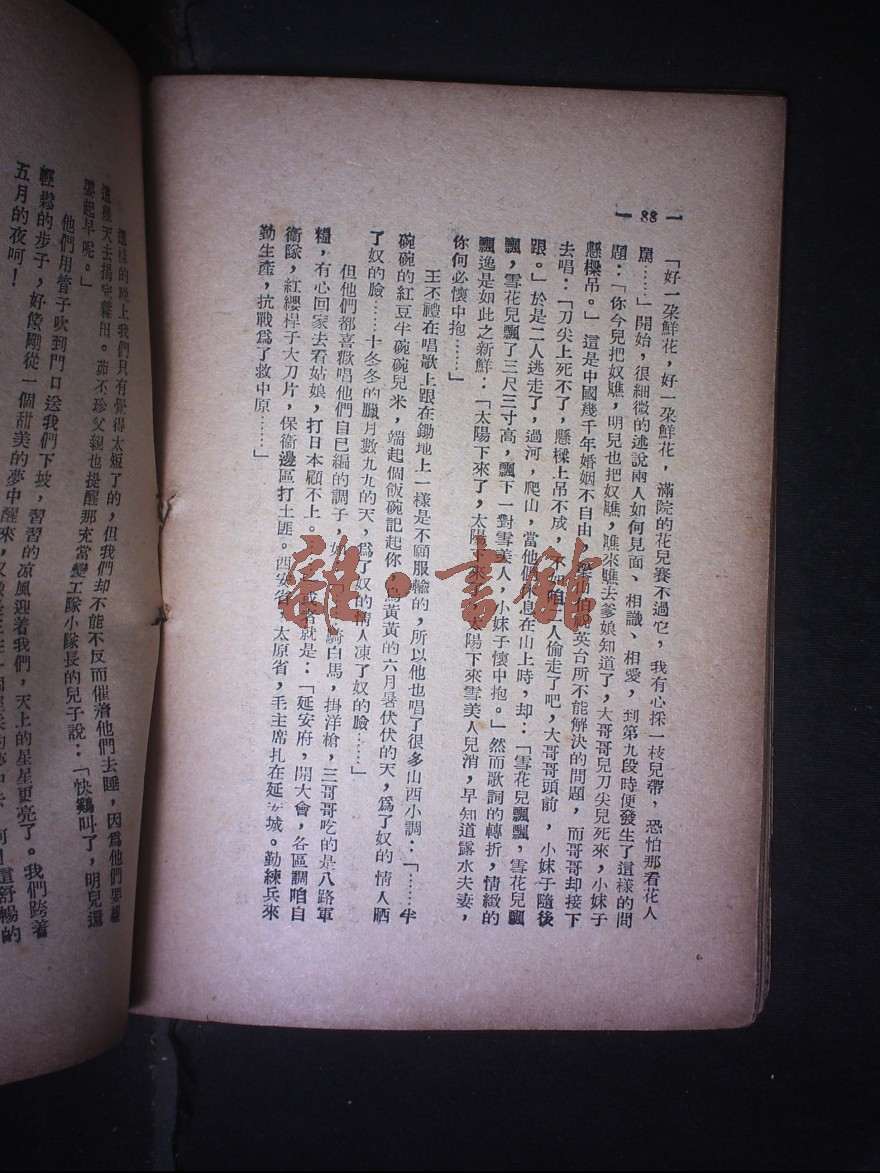 — 88 —
「好一朶鮮花，好一朶鮮花，滿院的花兒賽不過它，我有心採一枝兒帶，恐怕那看花人
罵……」開始，很細微的述說兩人如何見面、相識、相愛，到第九段時便發生了這樣的問
題：「你今兒把奴瞧，明兒也把奴瞧，瞧來瞧去爹娘知道了，大哥哥兒刀尖兒死來，小妹子
懸樑吊。」這是中國幾千年婚姻不自由，梁山伯祝英台所不能解決的問題，而哥哥却接下
去唱：「刀尖上死不了，懸樑上吊不成，不如咱二人偷走了吧，大哥哥頭前，小妹子隨後
跟。」於是二人逃走了，過河，爬山，當他們休息在山上時，却：「雪花兒飄飄，雪花兒飄
飄，雪花兒飄了三尺三寸高，飄下一對雪美人，小妹子懷中抱。」然而歌詞的轉折，情緻的
飄逸是如此之新鮮：「太陽下來了，太陽下來了，太陽下來雪美人兒消，早知道露水夫妻，
你何必懷中抱……」
王丕禮在唱歌上跟在鋤地上一樣是不願服輸的，所以他也唱了很多山西小調：「……半
碗碗的紅豆半碗碗兒米，端起個飯碗記起你，黃黃的六月暑伏伏的天，爲了奴的情人晒
了奴的臉……十冬冬的臘月數九九的天，爲了奴的情人凍了奴的臉……」
但他們都喜歡唱他們自己編的調子，如：「騎白馬，掛洋槍，三哥哥吃的是八路軍
糧，有心回家去看姑娘，打日本顧不上。」或者就是：「延安府，開大會，各區調咱自
衞隊，紅纓桿子大刀片，保衞邊區打土匪。西安省，太原省，毛主席扎在延安城。勤練兵來
勤生產，抗戰爲了救中原……」
這樣的晚上我們只有覺得太短了的，但我們却不能不反而催着他們去睡，因爲他們要趕
這幾天去揭完雜田。茹丕珍父親也提醒那充當變工隊小隊長的兒子說：「快鷄叫了，明兒還
要起早呢。」
他們用管子吹到門口送我們下坡，習習的凉風迎着我們，天上的星星更亮了。我們跨着
輕鬆的步子，好像剛從一個甜美的夢中醒來，
這舒暢的
五月的夜呵！
雜·書館